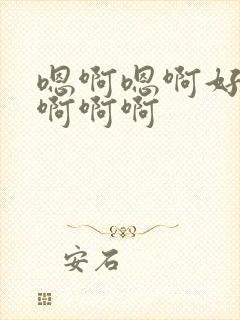 嗯啊嗯啊好
啊啊啊
安石